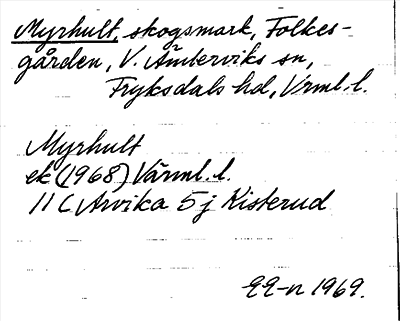 Myrhult, skogsmark, Folkes-
gården, V. Ämterviks sn,
Fryksdals hd, Vrml. l.
Myrhult
ek (1968) Värml. l.
11 C Arvika 5 j Kisterud
1969.